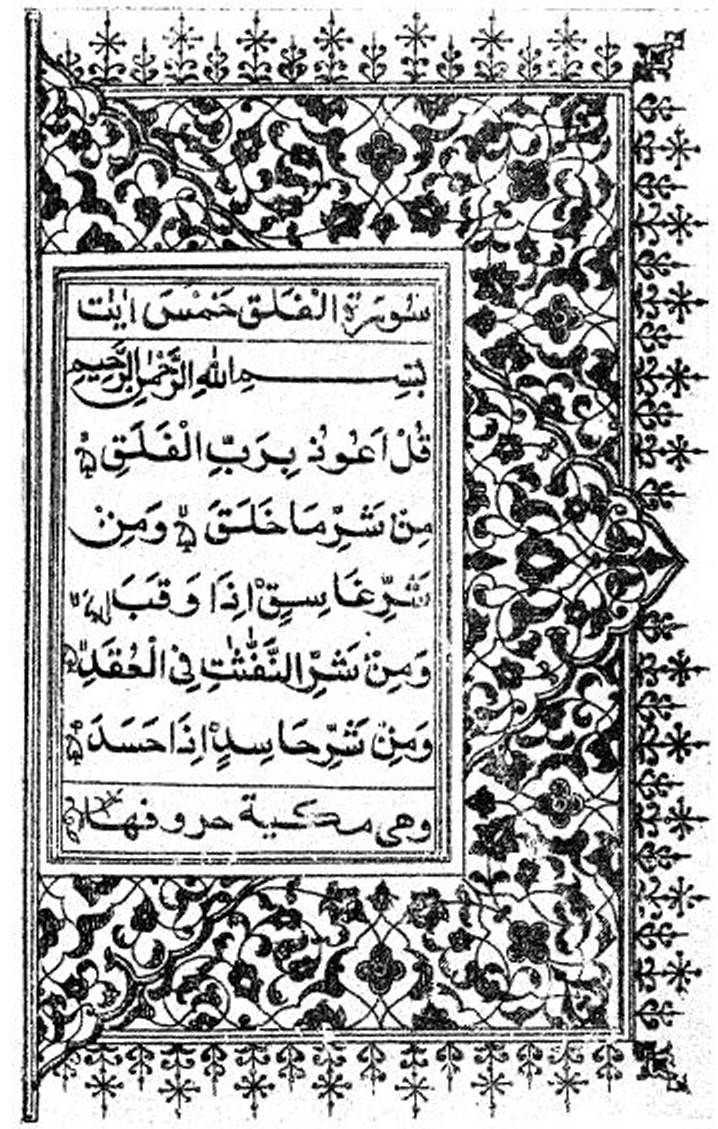 سورة الفلق خمس ايت
بسم الله الرحمن الرحيم
قُلْ اَعُوْذُ بِرَبِّ الْفَلَقِ
مِنْ شَرِّ مَا خَلَقَ وَمِنْ
شَرِّ غَاسِقٍ اِذَا وَقَبَ
وَمِنْ شَرِّ النَّفّٰثٰتِ فِي الْعُقَدِ
وَمِنْ شَرِّ حَاسِدٍ اِذَا حَسَدَ
وهى مكية حروفها